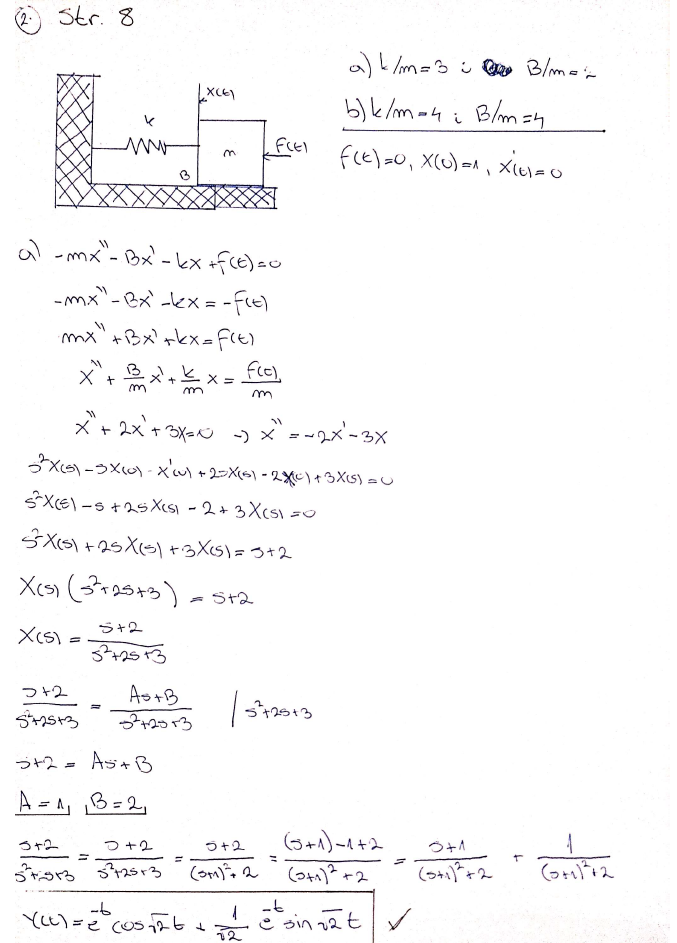 2. Str. 8
a) k/m=3 i B/m=2
b) k/m=4 i B/m=4
f(t)=0, X(0)=1, X'(t)=0
X(t)
k
m
F(t)
B
a) -mx'' - Bx' - kx + f(t) = 0
-mx'' - Bx' - kx = -f(t)
mx'' + Bx' + kx = f(t)
x'' + B/m x' + k/m x = f(t)/m
x'' + 2x' + 3x = 0 → x'' = -2x' - 3x
s²X(s) - sX(0) - x'(0) + 2sX(s) - 2X(0) + 3X(s) = 0
s²X(s) - s + 2sX(s) - 2 + 3X(s) = 0
s²X(s) + 2sX(s) + 3X(s) = s+2
X(s) (s²+2s+3) = s+2
X(s) = s+2 / s²+2s+3
s+2 / s²+2s+3 = As+B / s²+2s+3 | s²+2s+3
s+2 = As+B
A=1, B=2,
s+2 / s²+2s+3 = s+2 / s²+2s+3 = s+2 / (s+1)²+2 = (s+1)-1+2 / (s+1)²+2 = s+1 / (s+1)²+2 + 1 / (s+1)²+2
Y(t) = e^-t cos √2 t + 1/√2 e^-t sin √2 t ✓